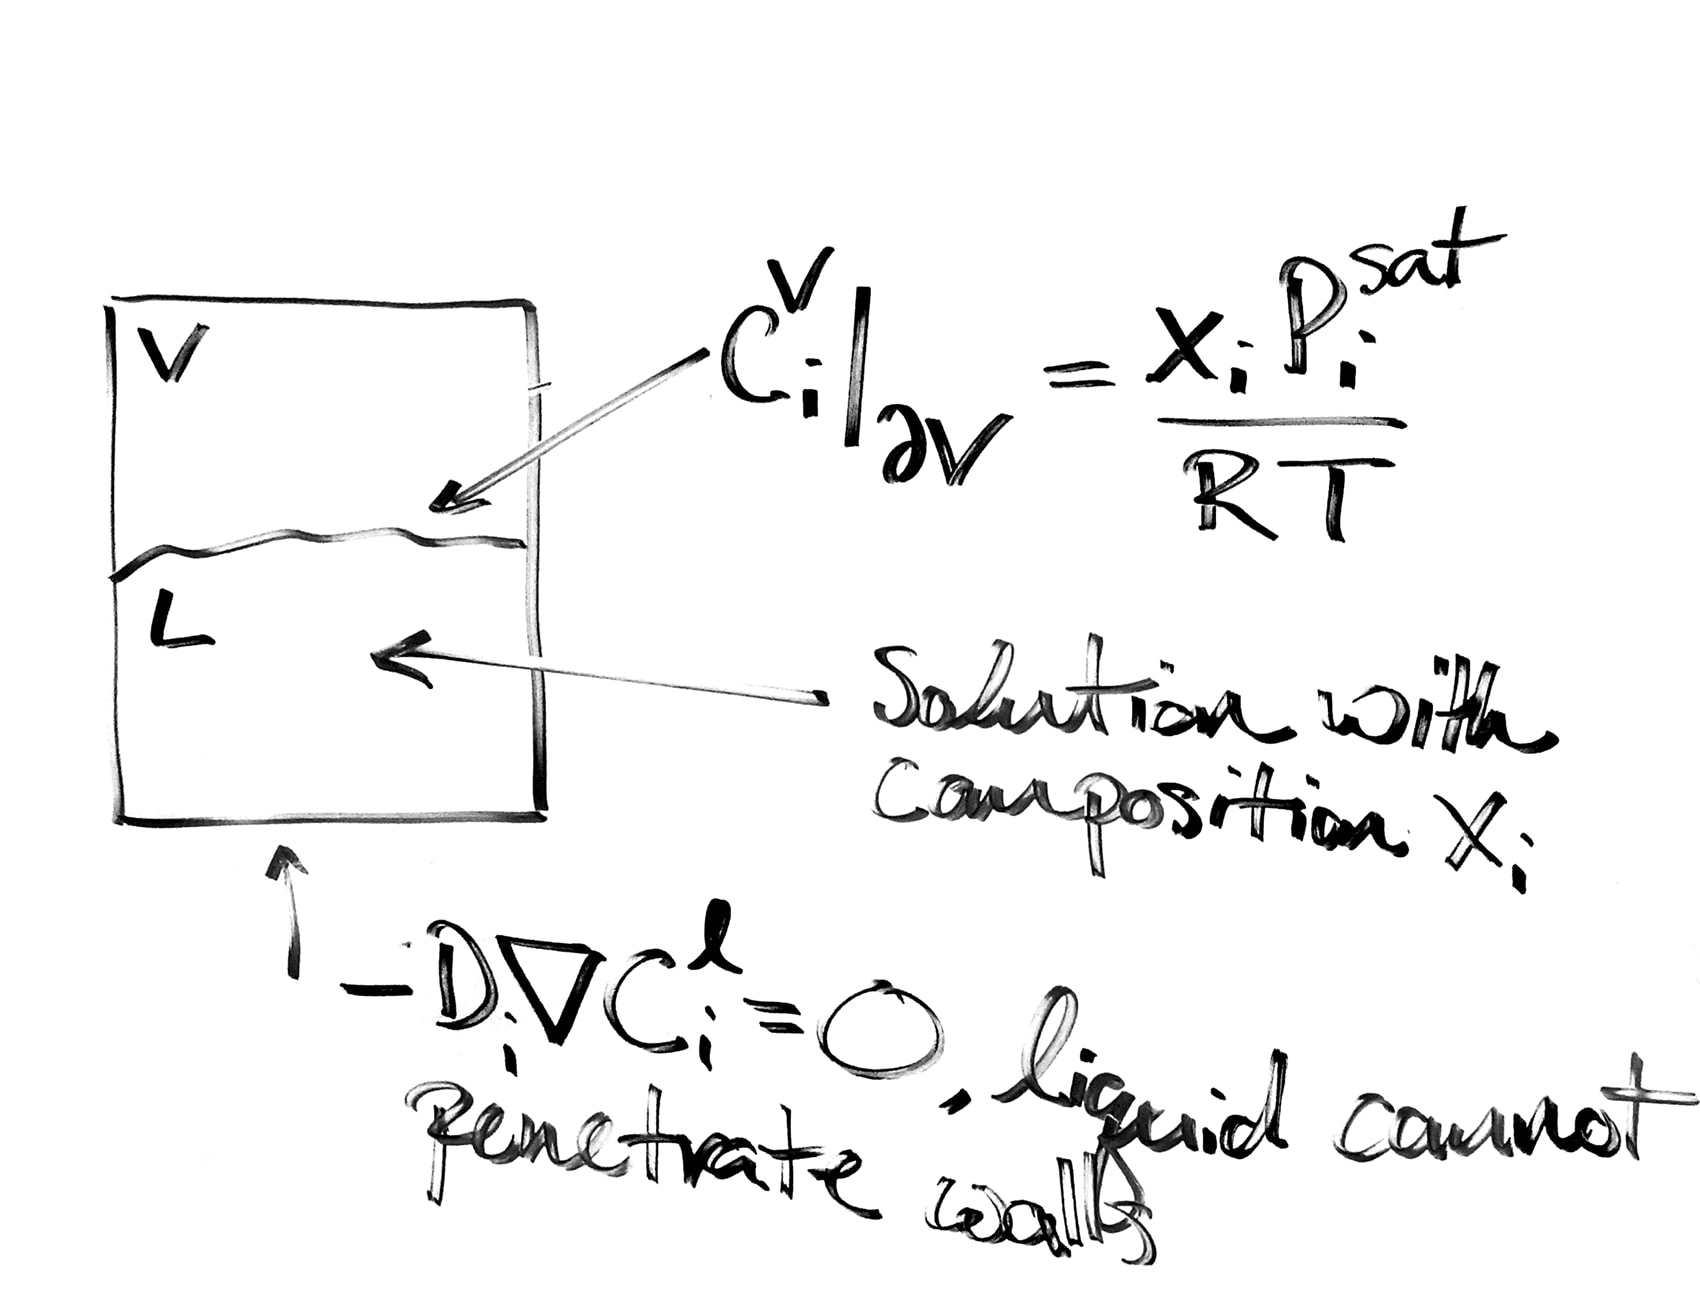 V
C_i^V|_∂V = x_i P_i^sat / RT
L
Solution with
composition x_i
-D_i ∇ C_i^l = 0, liquid cannot
penetrate walls